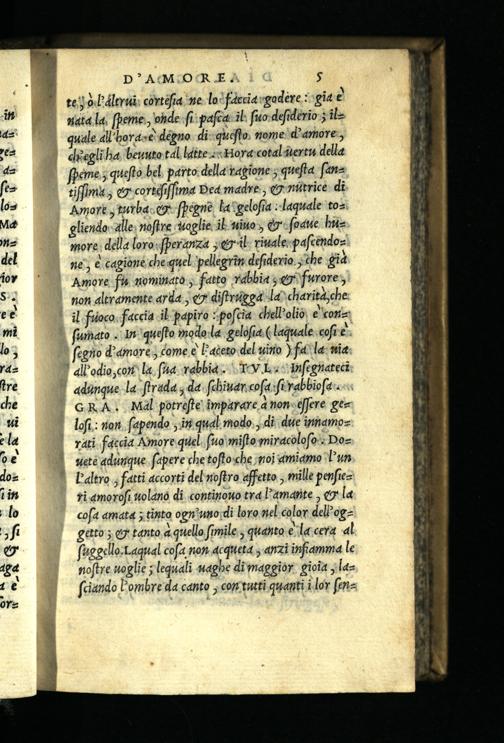 D'AMORE. 5
te, ò l'altrui cortesia ne lo faccia godere: già è
nata la speme, onde si pasca il suo desiderio; il-
quale all'hora è degno di questo nome d'amore,
ch'egli ha bevuto tal latte. Hora cotal uertu della
speme, questo bel parto della ragione, questa san-
tissima, & cortesissima Dea madre, & nutrice di
Amore, turba & spegne la gelosia: laquale to-
gliendo alle nostre uoglie il uiuo, & soaue hu-
more della loro speranza, & il riuale pascendo-
ne, è cagione che quel pellegrin desiderio, che già
Amore fu nominato, fatto rabbia, & furore,
non altramente arda, & distrugga la charità, che
il fuoco faccia il papiro: poscia chell'olio è con-
sumato. In questo modo la gelosia (laquale cosi è
segno d'amore, come è l'aceto del uino) fa la uia
all'odio, con la sua rabbia. TVL. Insegnateci
adunque la strada, da schiuar cosa si rabbiosa.
GRA. Mal potreste imparare à non essere ge-
losi: non sapendo, in qual modo, di due innamo-
rati faccia Amore quel suo misto miracoloso. Do-
uete adunque sapere che tosto che noi amiamo l'un
l'altro, fatti accorti del nostro affetto, mille pensie-
ri amorosi uolano di continouo tra l'amante, & la
cosa amata; tinto ogn'uno di loro nel color dell'og-
getto; & tanto à quello simile, quanto è la cera al
suggello. Laqual cosa non acqueta, anzi infiamma le
nostre uoglie; lequali uaghe di maggior gioia, la-
sciando l'ombre da canto, con tutti quanti i lor sen-